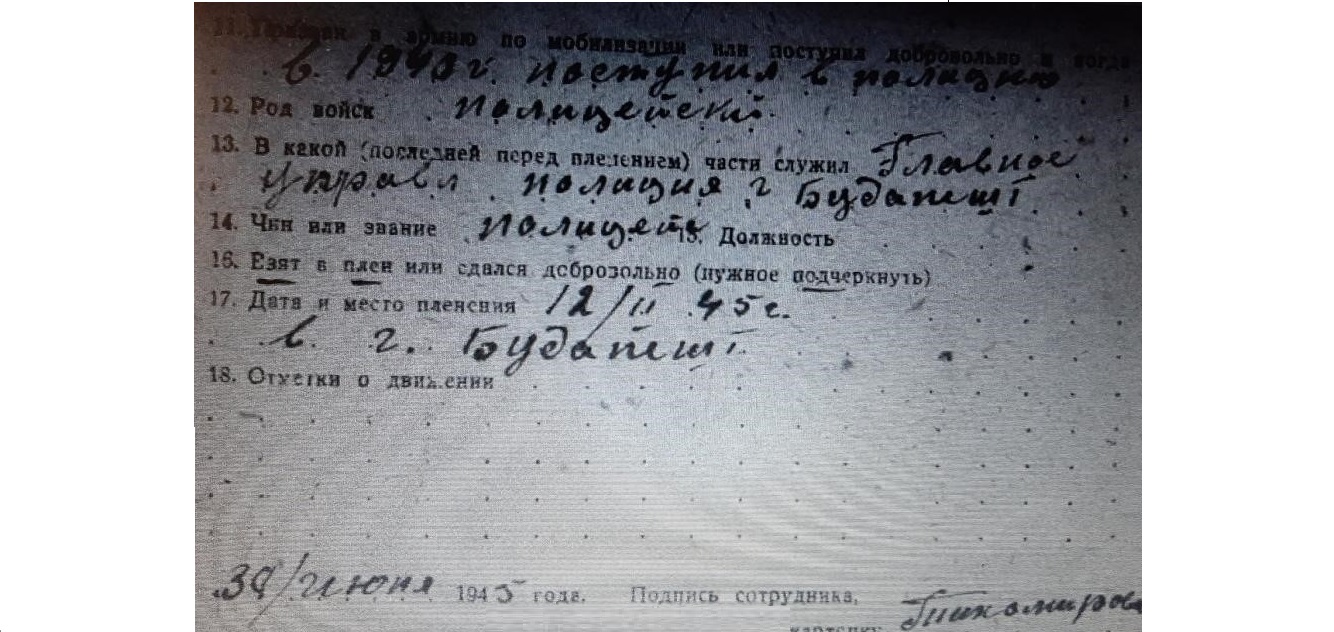 11. Призван в армию по мобилизации или поступил добровольно и когда
в 1940 г. поступил в полицию
12. Род войск полицейский
13. В какой (последней перед пленением) части служил Главное
управл полиция г Будапешт
14. Чин или звание полицейс 15. Должность
16. Взят в плен или сдался добровольно (нужное подчеркнуть)
17. Дата и место пленения 12/II 45 г.
в г. Будапешт
18. Отметки о движении
июня 1945 года. Подпись сотрудника,
Тихомирова